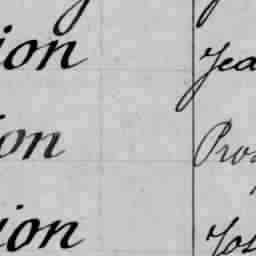 ion Jea
ion Pros
ion Jos